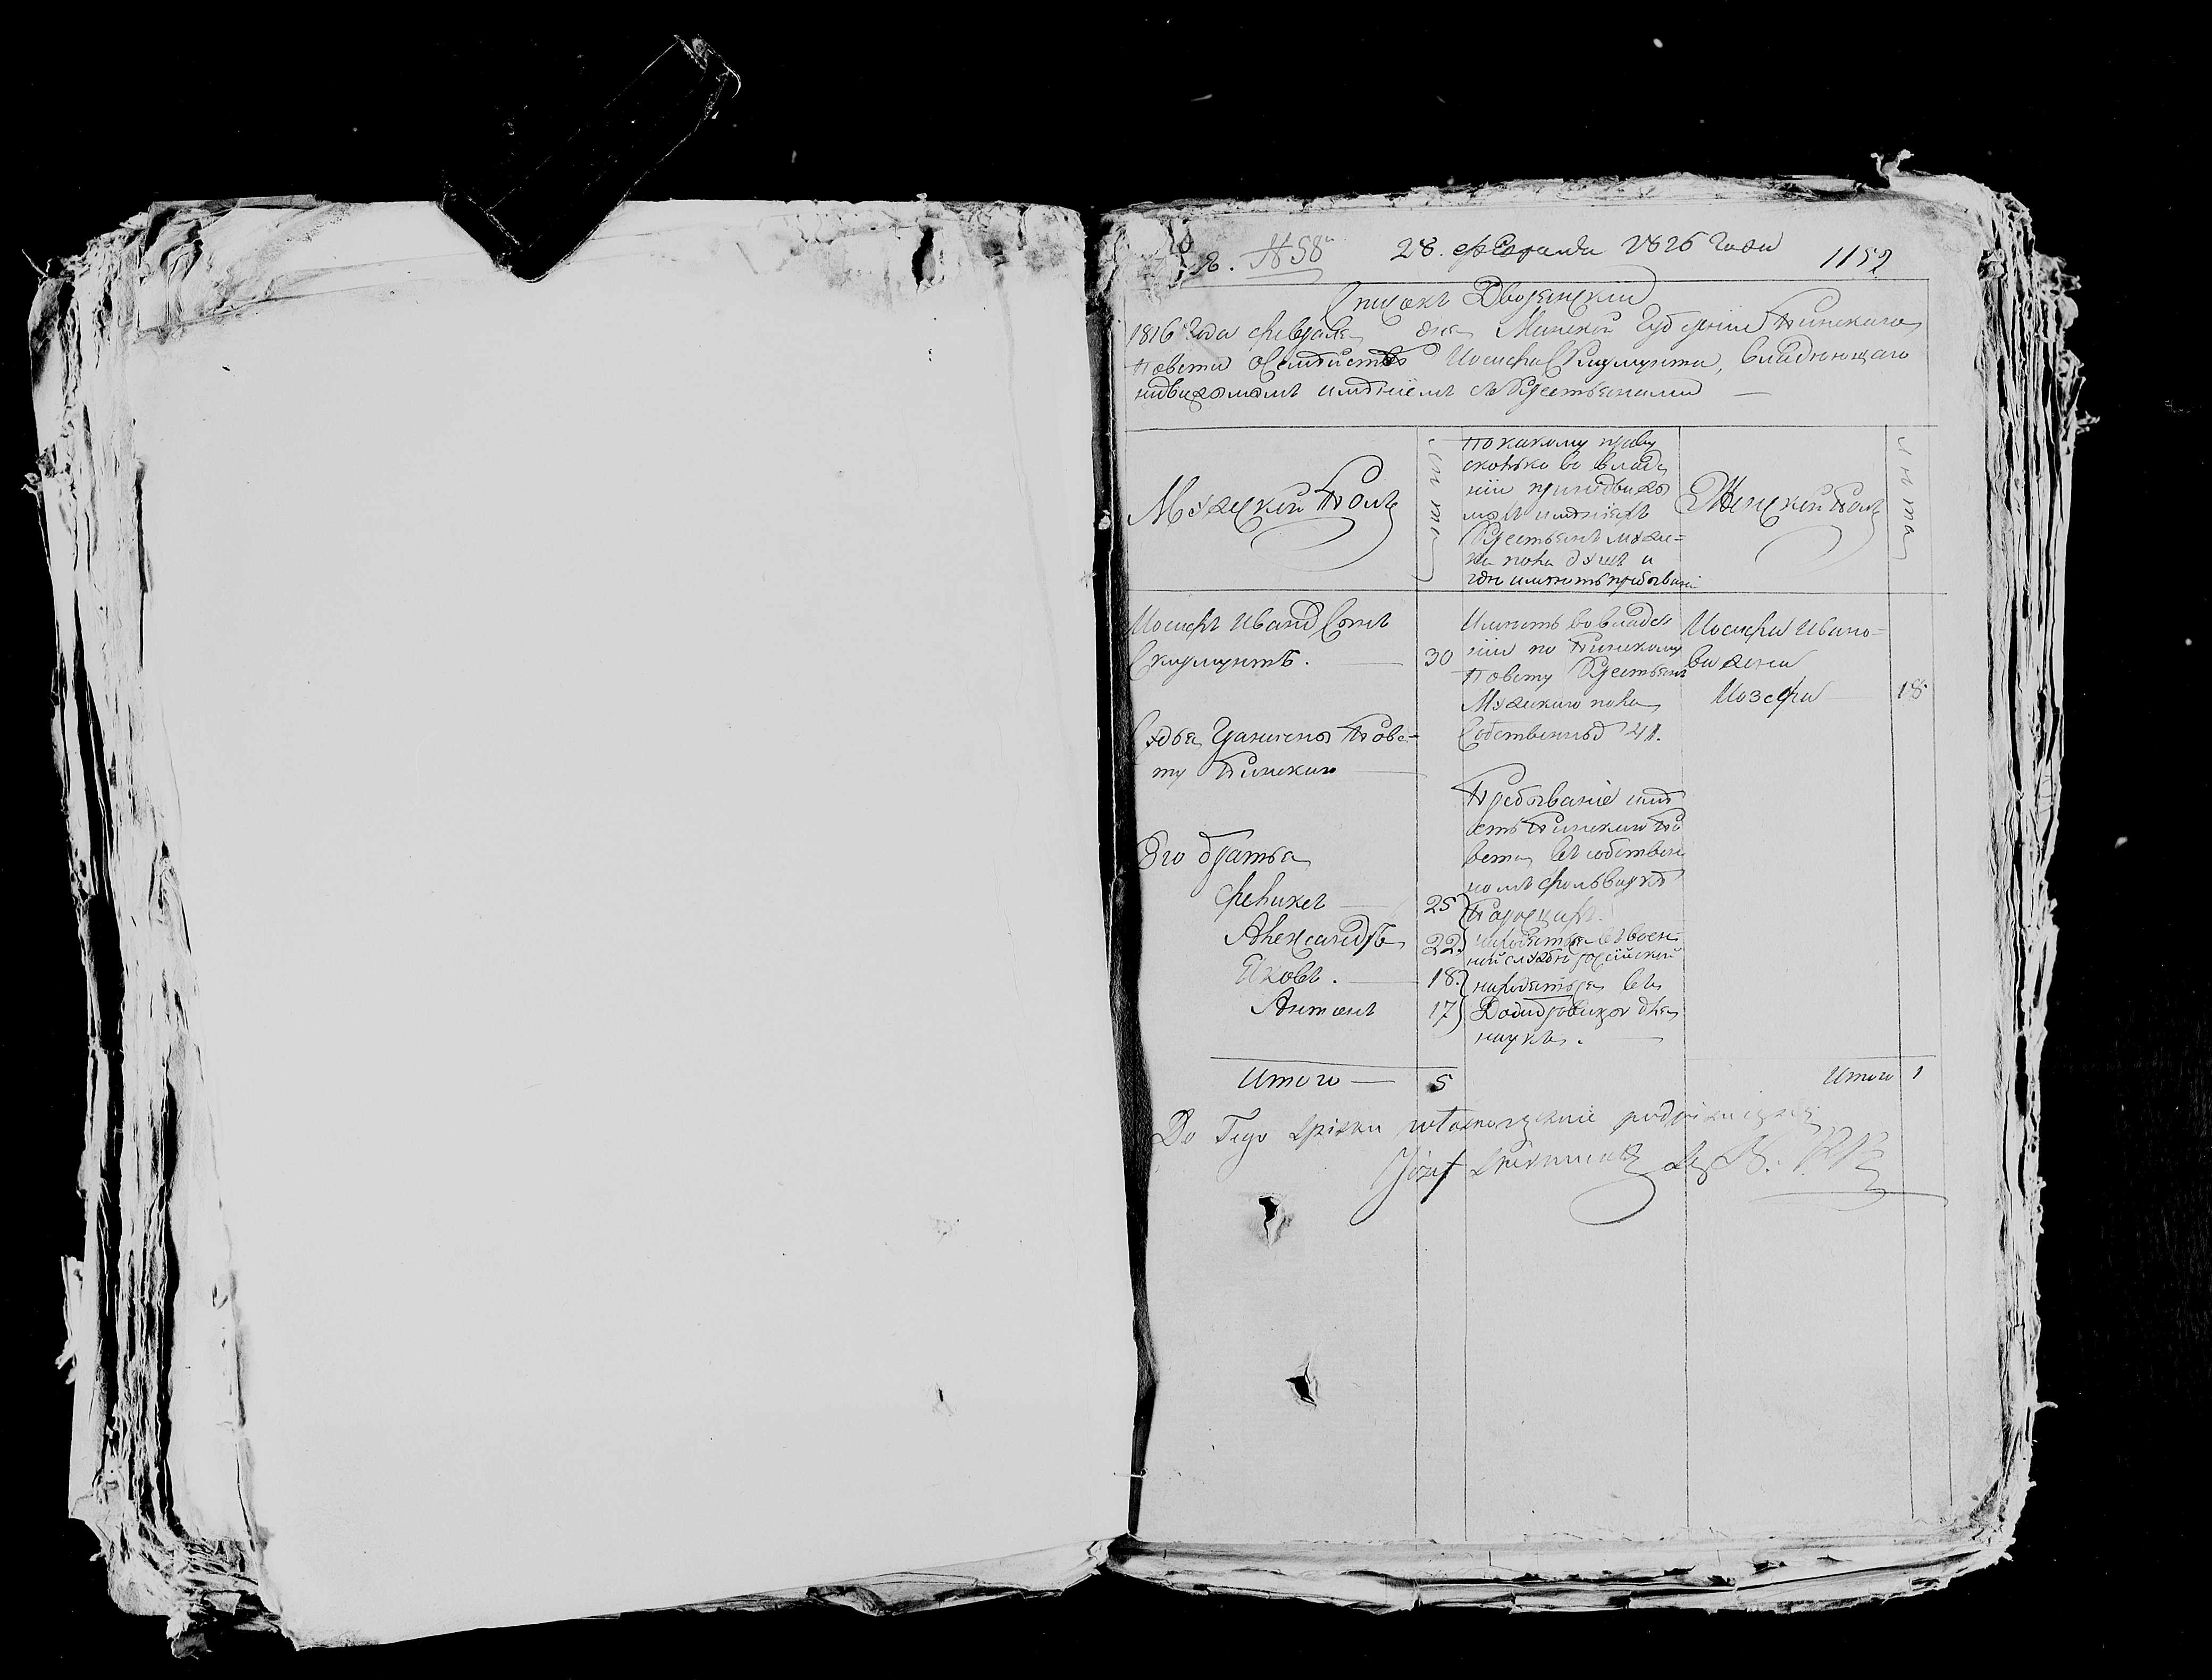 № 58й 28. февраля 1816 года 1152
Списокъ Дворянский
1816 года февраля дня Минской Губернии Пинскаго
Повета о семействе Иосифа Скирмунта, владеющаго
недвижомымъ имѣниемъ съ Крестьянами
Мужеский Полъ
лета
По какому праву
сколько во владе
нии при недвижо
момъ имѣнии
Крестьянъ муже=
ска пола душъ и
где имѣютъ пребывание
Женский Полъ
лета
Иосифъ Иванъ Сынъ
Скирмунтъ. 30
Судья Граничный Пове=
ту Пинскаго
Его братья
Феликсъ 25
Александръ 22
Яковъ. 18.
Антонъ 17
Имѣетъ во владе
нии по Пинскому
Повету Крестьянъ
Мужескаго пола
Собственныхъ 41.
Пребывание имѣ
етъ Пинскаго По
вета въ собствен
номъ фольварке
находятся въ воен=
ной службе российской
находятся въ
для
наукъ.
Иосифа Ивано=
ва жена
Иозефа 18
Итого 5
Итого 1
Do Tego spisku własnoręcznie podpisuię się
Józef Skirmunt